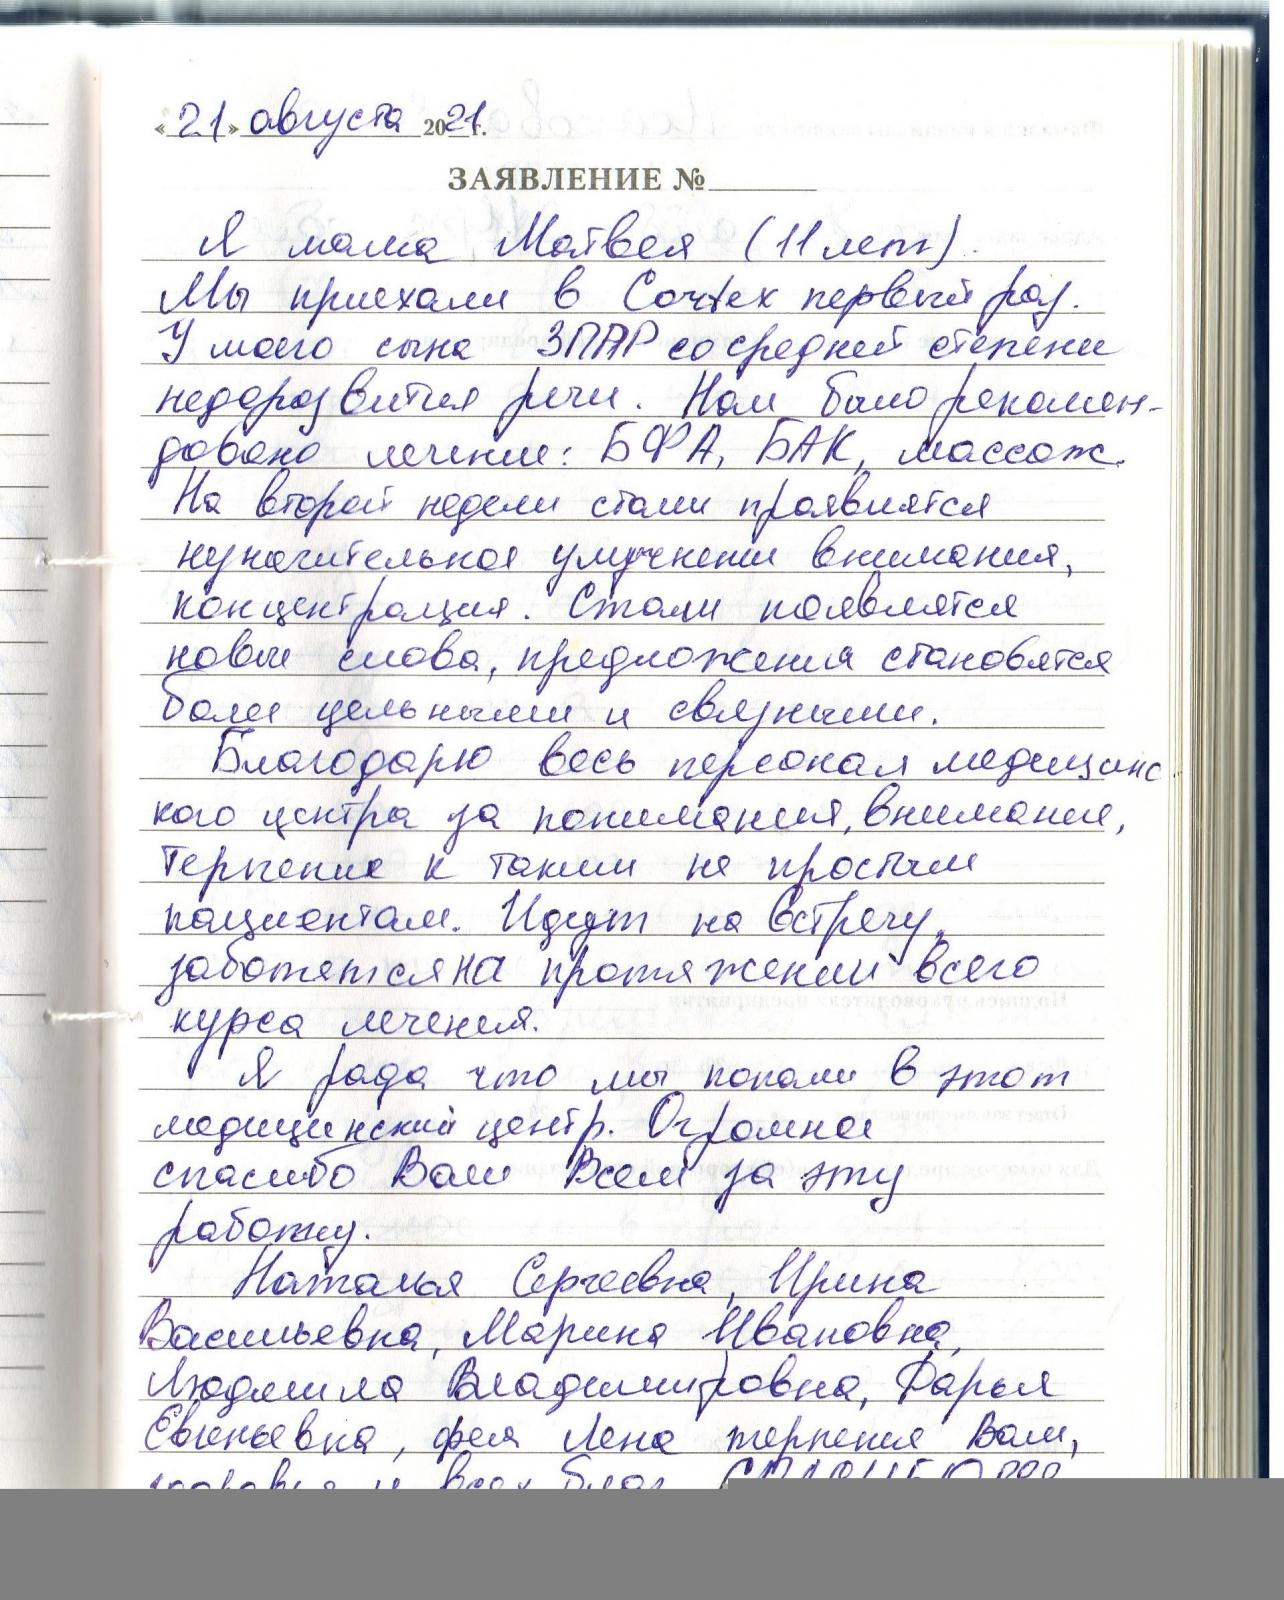 «21» августа 2021г.
ЗАЯВЛЕНИЕ №
Я мама Матвея (11 лет).
Мы приехали в Cortex первый раз.
У моего сына ЗПРР со средней степени
недоразвития речи. Нам было рекомен-
довано лечение: БФА, БАК, массаж.
На второй недели стали проявлятся
незначительное улучшении внимания,
концентрация. Стали появлятся
новые слова, предложения становятся
более цельными и связными.
Благодарю весь персонал медицинс
кого центра за понимания, внимание,
терпение к таким не простым
пациентам. Идут на встречу,
заботятся на протяжении всего
курса лечения.
Я рада что мы попали в этот
медицинский центр. Огромное
спасибо Вам Всем за эту
работу.
Наталья Сергеевна, Ирина
Васильевна, Марина Ивановна,
Людмила Владимировна, Дарья
Евгеньевна, фея Лена терпения Вам,
здоровья и всех благ. СПАСИБО!!!